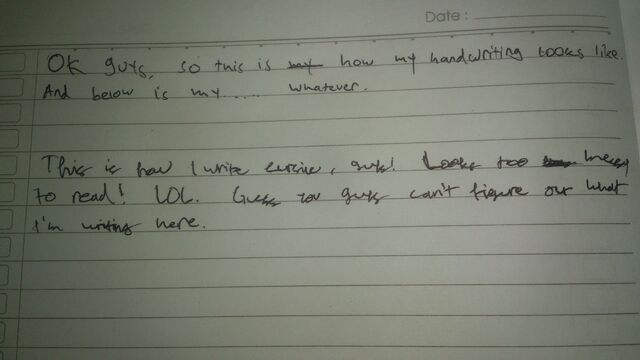 Date :
OK guys, so this is my how my handwriting looks like.
And below is my..... whatever.
This is how I write cursive, guys! Looks too messy
to read! LOL. Guess you guys can't figure out what
I'm writing here.